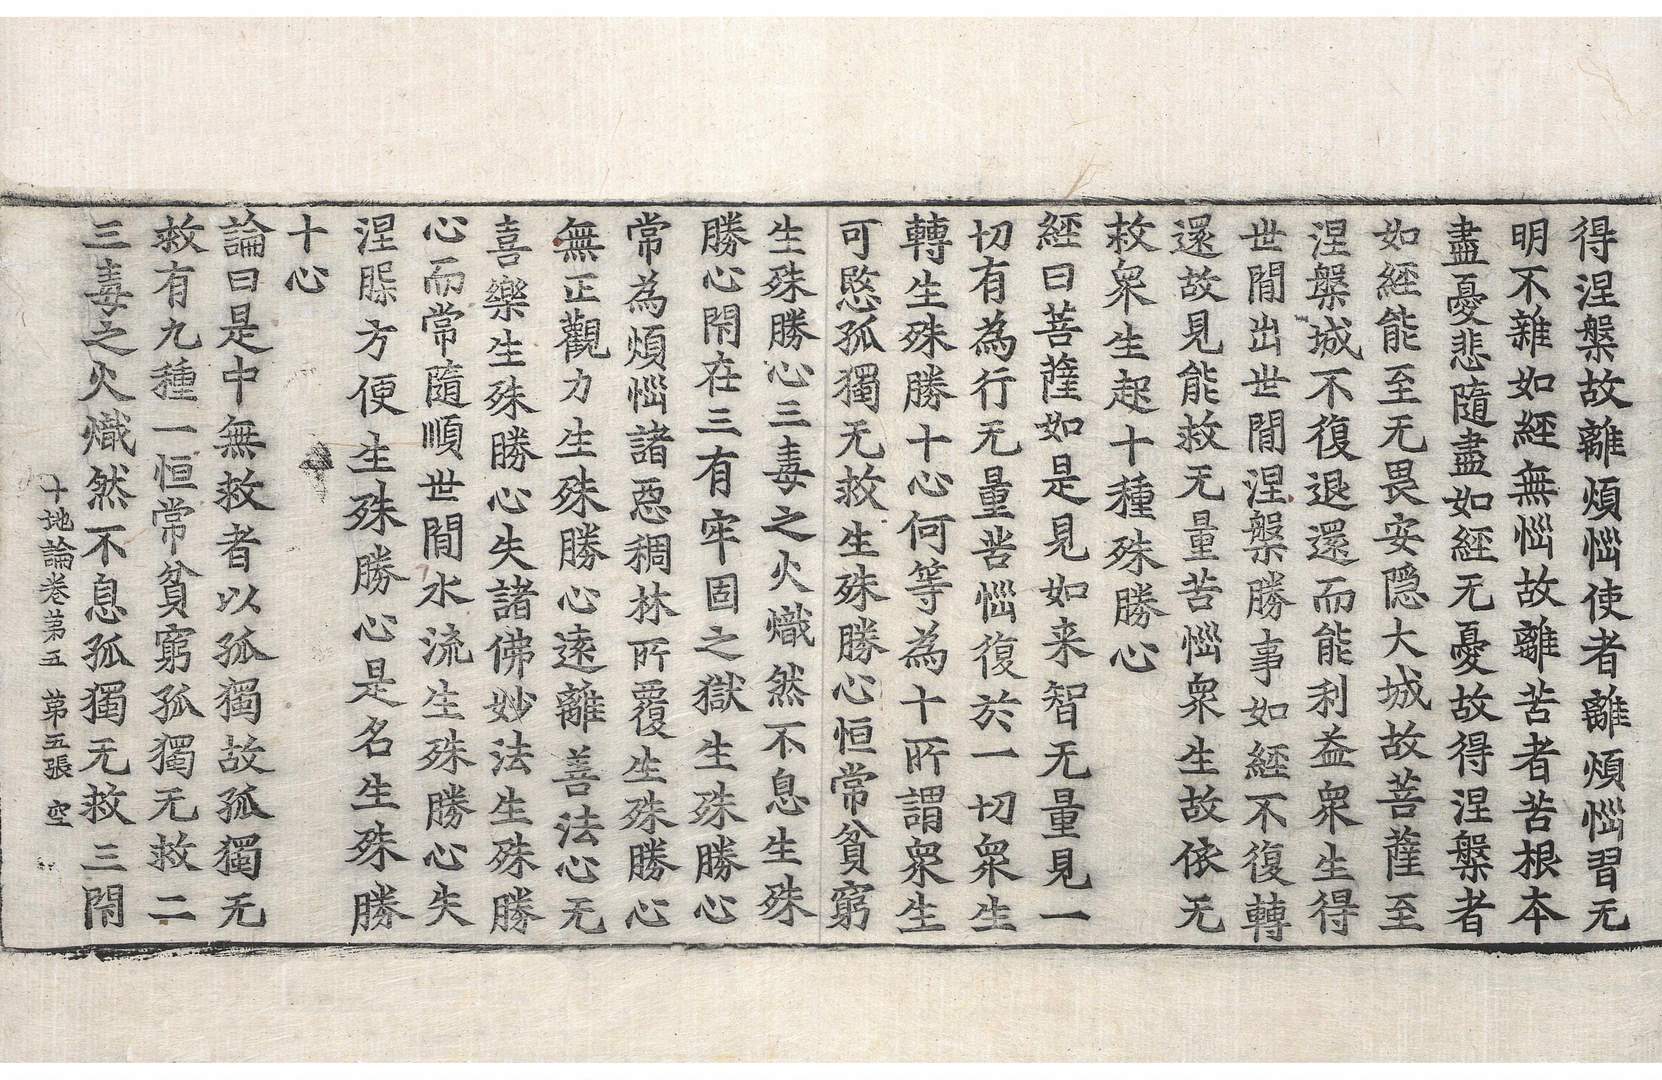 得涅槃故離煩惱使者離煩惱習无
明不雜如經無惱故離苦者苦根本
盡憂悲隨盡如經无憂故得涅槃者
如經能至无畏安隱大城故菩薩至
涅槃城不復退還而能利益衆生得
世閒出世閒涅槃勝事如經不復轉
還故見能救无量苦惱衆生故依无
救衆生起十種殊勝心
經曰菩薩如是見如来智无量見一
切有為行无量苦惱復於一切衆生
轉生殊勝十心何等為十所謂衆生
可愍孤獨无救生殊勝心恒常貧窮
生殊勝心三毒之火熾然不息生殊
勝心閇在三有牢固之獄生殊勝心
常為煩惱諸惡稠林所覆生殊勝心
無正觀力生殊勝心遠離善法心无
喜樂生殊勝心失諸佛妙法生殊勝
心而常隨順世閒水流生殊勝心失
涅槃方便生殊勝心是名生殊勝
十心
論曰是中無救者以孤獨故孤獨无
救有九種一恒常貧窮孤獨无救二
三毒之火熾然不息孤獨无救三閇
十地論卷第五 第五張 空